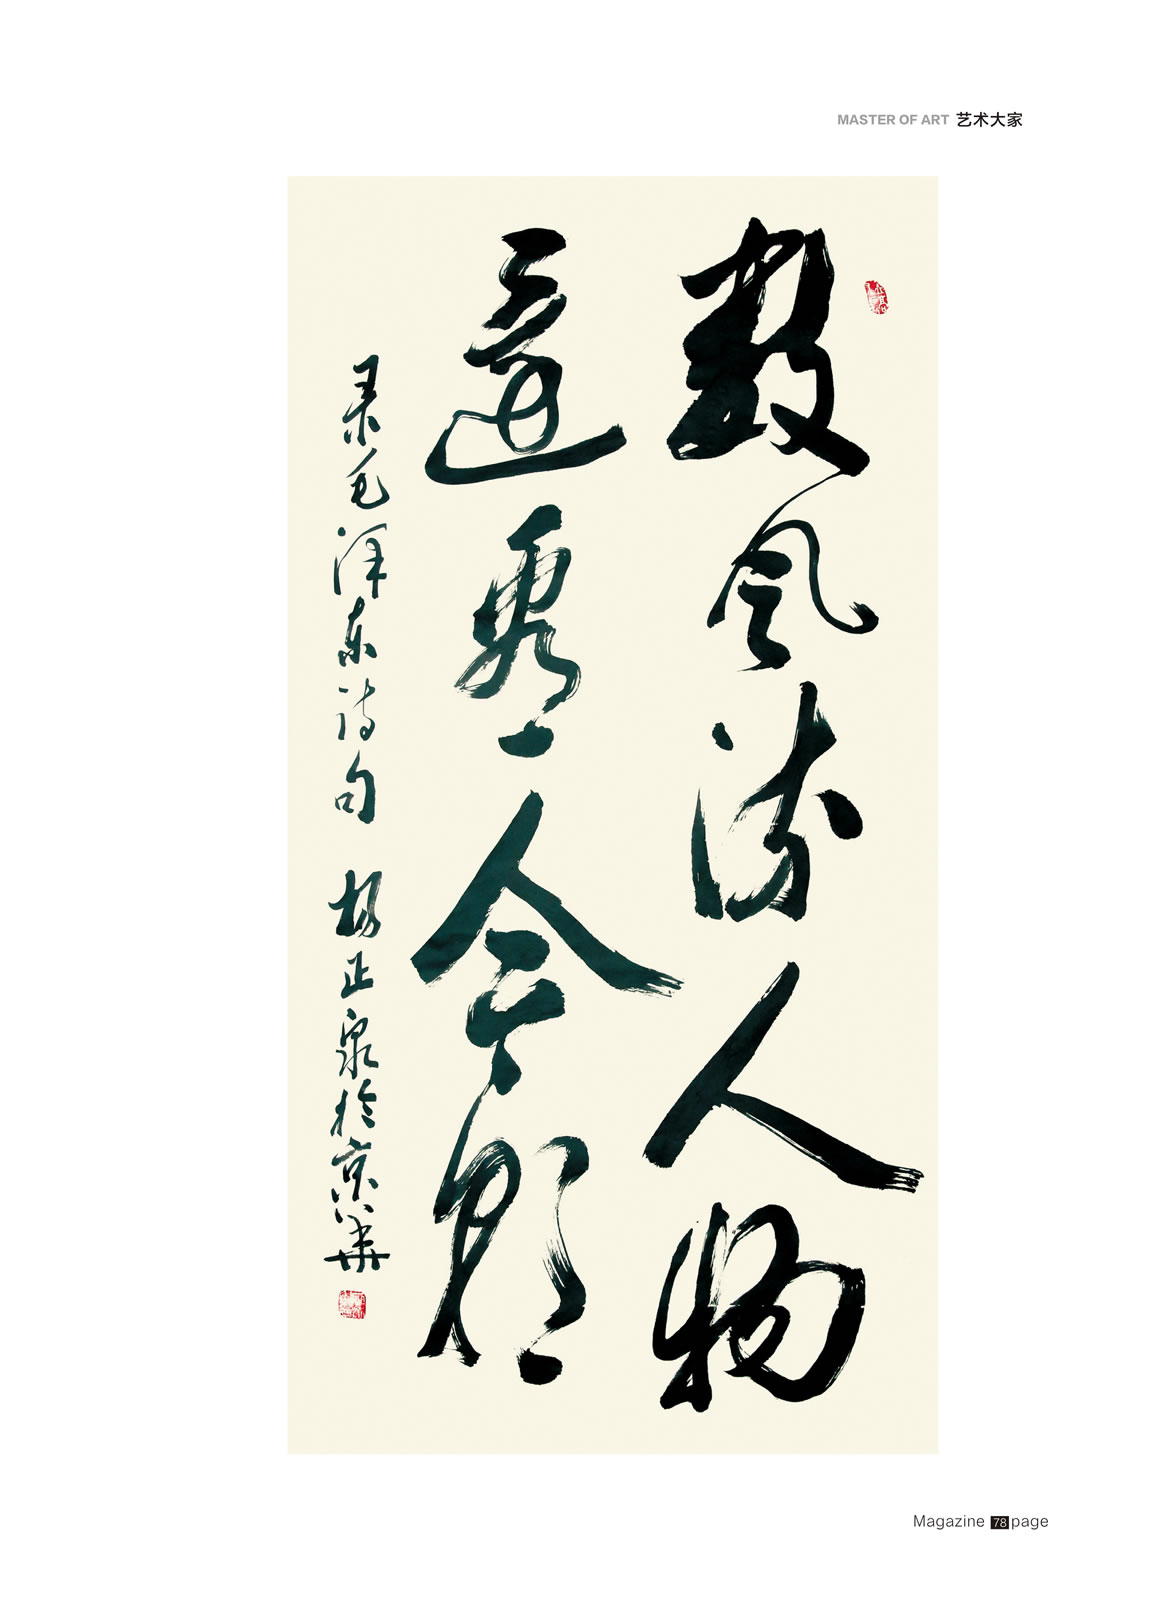 MASTER OF ART 艺术大家
数风流人物
还看今朝
录毛泽东诗句 杨正泉于京华
Magazine 78 page